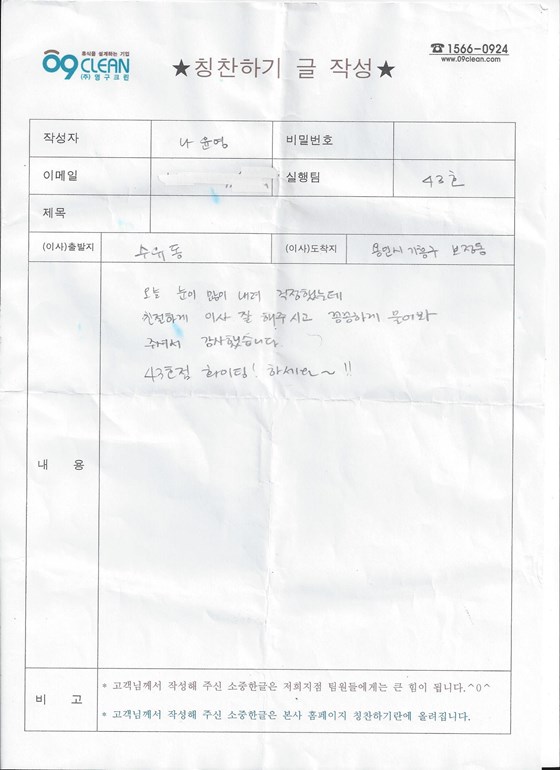 휴식을 설계하는 기업
09CLEAN
(주) 영구크린
★칭찬하기 글 작성★
☎1566-0924
www.09clean.com
작성자 나윤영 비밀번호
이메일 실행팀 43호
제목
(이사)출발지 수유동 (이사)도착지 용인시 기흥구 보정동
오늘 눈이 많이 내려 걱정했는데
친절하게 이사 잘 해주시고 꼼꼼하게 물어봐
주셔서 감사했습니다.
43호점 화이팅! 하세요~!!
내 용
비 고
* 고객님께서 작성해 주신 소중한글은 저희지점 팀원들에게는 큰 힘이 됩니다.^0^
* 고객님께서 작성해 주신 소중한글은 본사 홈페이지 칭찬하기란에 올려집니다.